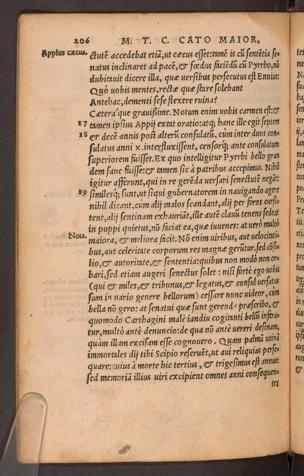 206 M. T. C. CATO MAIOR,
Appius cæcus.
ctutē accedebat etiã, ut cæcus esset: tamē is cũ sentētia se-
natus inclinaret ad pacē, & fœdus faciēdũ cũ Pyrrho, nõ
dubitauit dicere illa, quæ uersibus persecutus est Ennius:
Quò uobis mentes, rectæ quæ stare solebant
Antehac, dementi sese flexere ruina?
Cætera'que grauissime. Notum enim uobis carmen est: &
17 tamen ipsius Appij extat oratio: atq; hanc ille egit septem
18 & decē annis post alterũ consulatũ, cùm inter duos con-
sulatus anni x. interfluxissent, censorq; ante consulatum
superiorem fuisset. Ex quo intelligitur Pyrrhi bello gran
dem sanè fuisse: & tamen sic à patribus accepimus. Nihil
igitur afferunt, qui in re gerēda uersari senectutē negãt:
19 similesq; sunt, ut siqui gubernatorem in nauigando agere
nihil dicant, cùm alij malos scandant, alij per foros cursi-
tent, alij sentinam exhauriãt, ille autē clauũ tenens sedeat
in puppi quietus, nõ faciat ea, quæ iuuenes: at uerò multò
Nota.
maiora, & meliora facit. Nõ enim uiribus, aut uelocitati-
bus, aut celeritate corporum res magnæ gerũtur, sed cõsi-
lio, & autoritate, & sententia: quibus non modò non or-
bari, sed etiam augeri senectus solet: nisi fortè ego uobis
(qui & miles, & tribunus, & legatus, & consul uersatus
sum in uario genere bellorum) cessare nunc uideor, cùm
bella nõ gero: at senatui quæ sunt gerend, præscribo, &
quomodo Carthagini malè iandiu cogitanti bellũ infera-
tur, multò antè denuncio: de qua nõ antè uereri desinam,
quàm illam excisam esse cognouero. Quam palmã utinã
immortales dij tibi Scipio reseruēt, ut aui reliquias perse-
quare: cuius à morte hic tertius, & trigesimus est annus:
sed memoriã illius uiri excipient omnes anni consequen-
tes